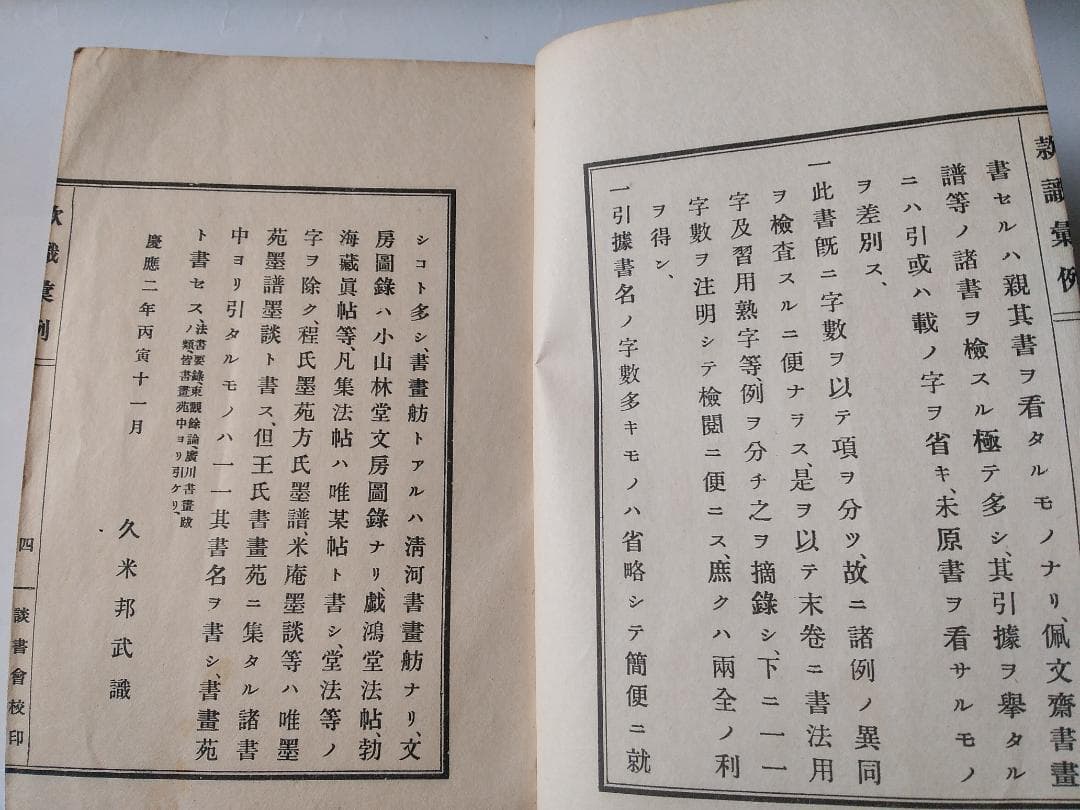 款識彙例
書セルハ親其書ヲ看タルモノナリ、佩文齋書畫
譜等ノ諸書ヲ檢スル極テ多シ、其引據ヲ擧タル
ニハ引或ハ載ノ字ヲ省キ、未原書ヲ看サルモノ
ヲ差別ス、
一此書既ニ字數ヲ以テ項ヲ分ツ、故ニ諸例ノ異同
ヲ檢査スルニ便ナラス、是ヲ以テ末卷ニ書法用
字及習用熟字等、例ヲ分チ之ヲ摘錄シ、下ニ一一
字數ヲ注明シテ檢閱ニ便ニス、庶クハ兩全ノ利
ヲ得ン、
一引據書名ノ字數多キモノハ省略シテ簡便ニ就
シコト多シ、書畫舫トアルハ淸河書畫舫ナリ、文
房圖錄ハ小山林堂文房圖錄ナリ、戲鴻堂法帖、勃
海藏眞帖等、凡集法帖ハ唯某帖ト書シ、堂法等ノ
字ヲ除ク、程氏墨苑方氏墨譜、米庵墨談等ハ唯墨
苑墨譜墨談ト書ス、但王氏書畫苑ニ集タル諸書
中ヨリ引タルモノハ一一其書名ヲ書シ、書畫苑
ト書セス、法書要錄、東觀餘論、廣川書畫跋
ノ類、皆書畫苑中ヨリ引ケリ、
慶應二年丙寅十一月
久米邦武識
款識彙例
四
談書會校印